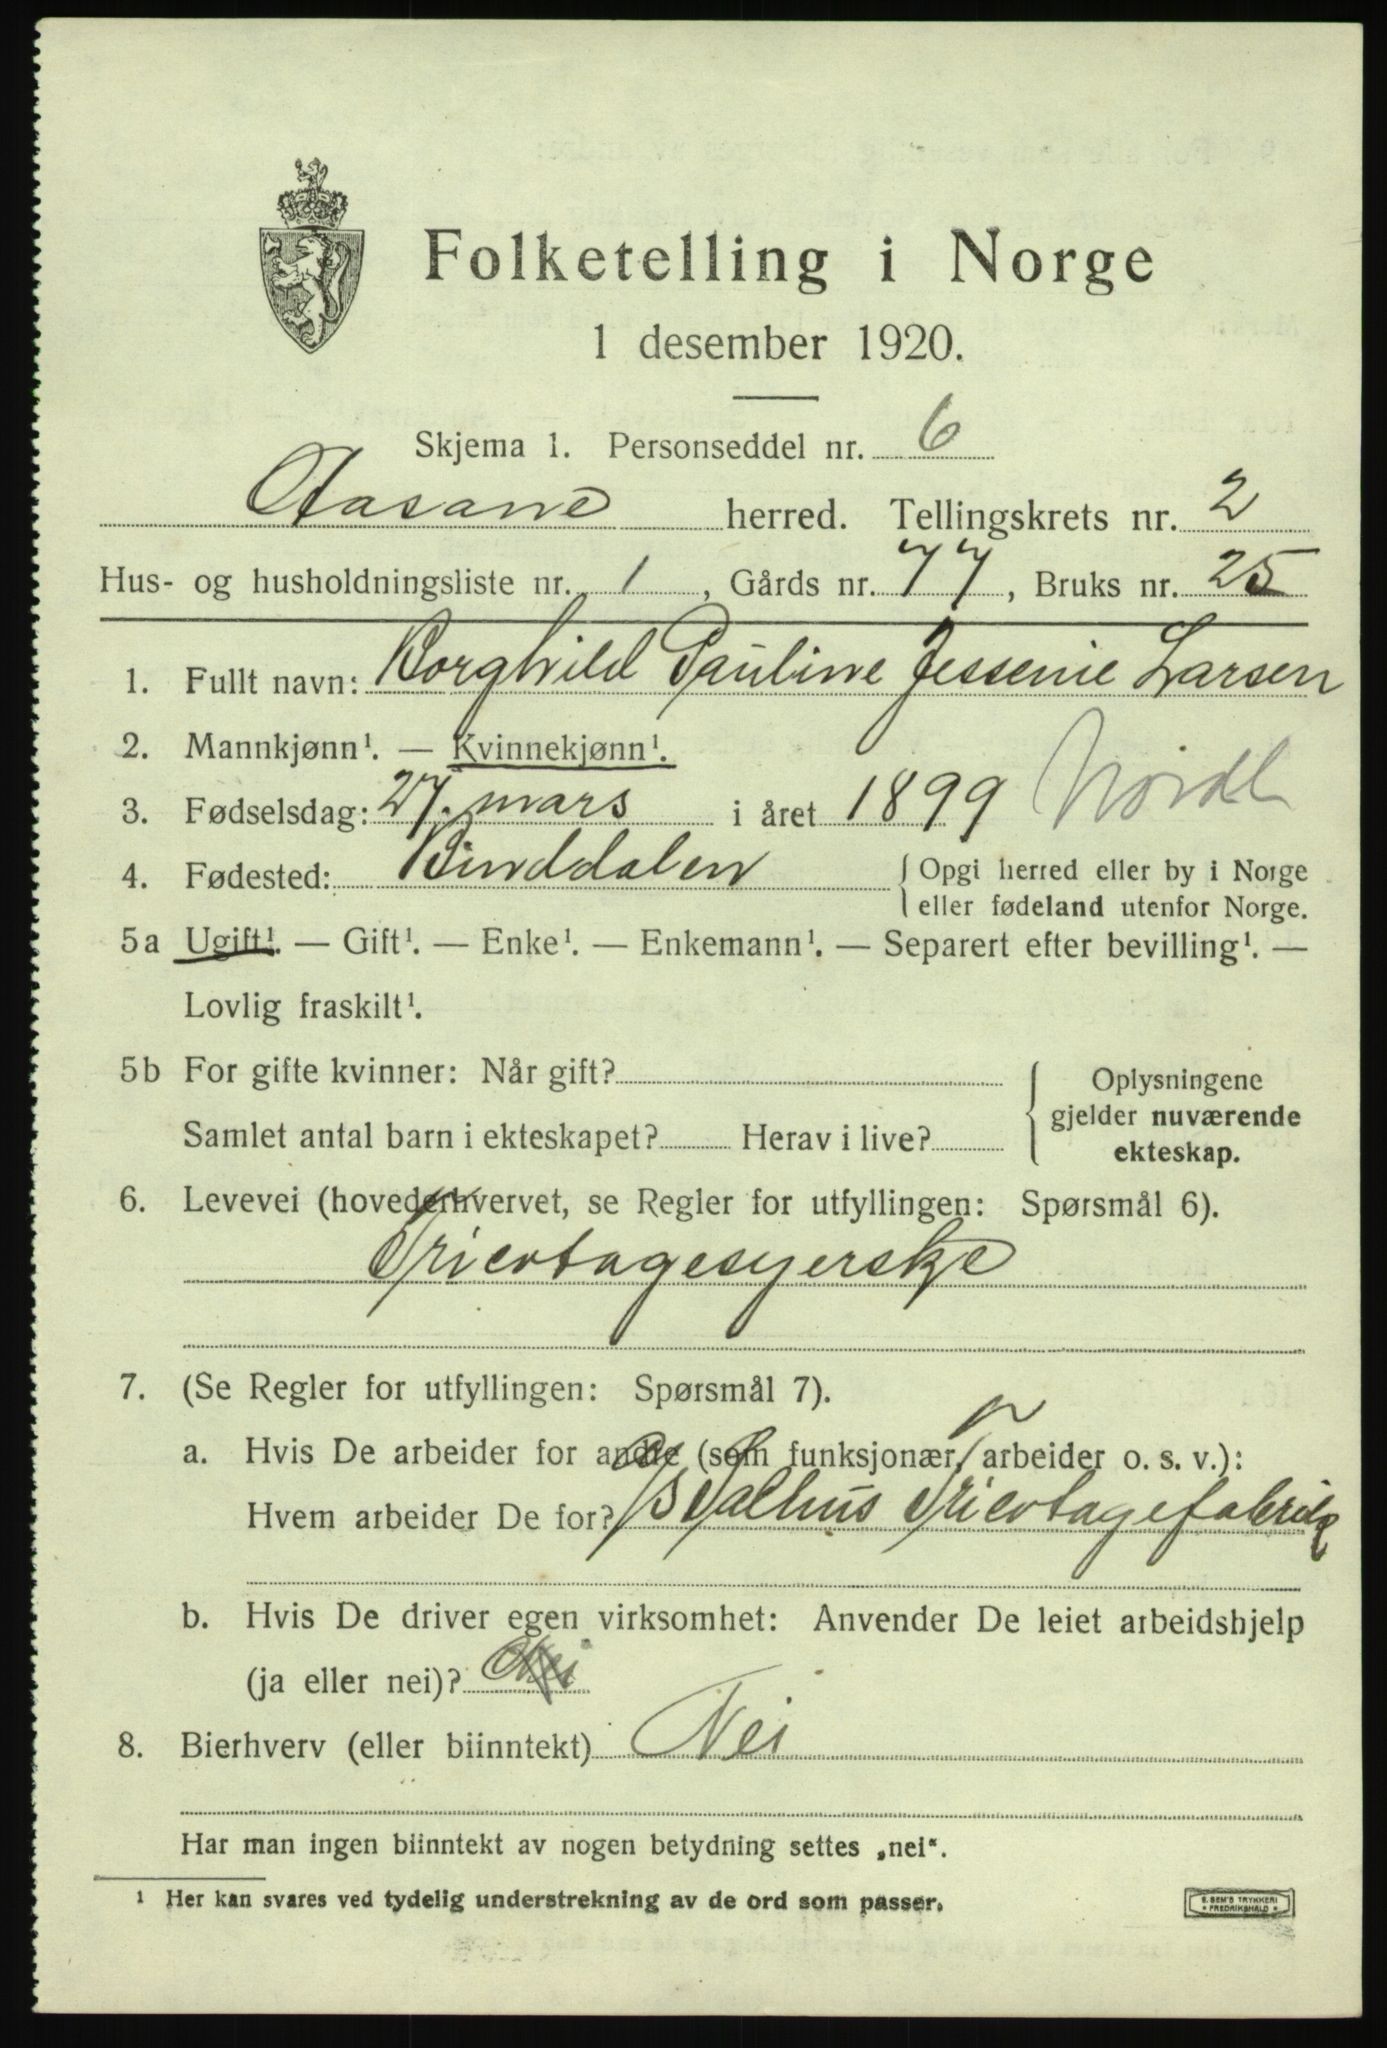 Folketelling i Norge
1 desember 1920.
Skjema 1. Personseddel nr. 6
Aasane herred. Tellingskrets nr. 2
Hus- og husholdningsliste nr. 1, Gårds nr. 77, Bruks nr. 25
1. Fullt navn: Borghild Pauline Jessenie Larsen
2. Mannkjønn¹. — Kvinnekjønn¹.
3. Fødselsdag: 27. mars i året 1899 Nordl
4. Fødested: Binddalen { Opgi herred eller by i Norge
eller fødeland utenfor Norge.
5a Ugift¹. — Gift¹. — Enke¹. — Enkemann¹. — Separert efter bevilling¹. —
Lovlig fraskilt¹.
5b For gifte kvinner: Når gift?
Samlet antal barn i ekteskapet? Herav i live?
{ Oplysningene
gjelder nuværende
ekteskap.
6. Levevei (hovederhvervet, se Regler for utfyllingen: Spørsmål 6).
Tricotagesyerske
7. (Se Regler for utfyllingen: Spørsmål 7).
a. Hvis De arbeider for andre (som funksjonær, arbeider o. s. v.):
Hvem arbeider De for? A/S Salhus Tricotagefabrik
b. Hvis De driver egen virksomhet: Anvender De leiet arbeidshjelp
(ja eller nei)? Nei
8. Bierhverv (eller biinntekt) Nei
Har man ingen biinntekt av nogen betydning settes „nei“.
¹ Her kan svares ved tydelig understrekning av de ord som passer.
E. SEM'S TRYKKERI
* FREDRIKSHALD *